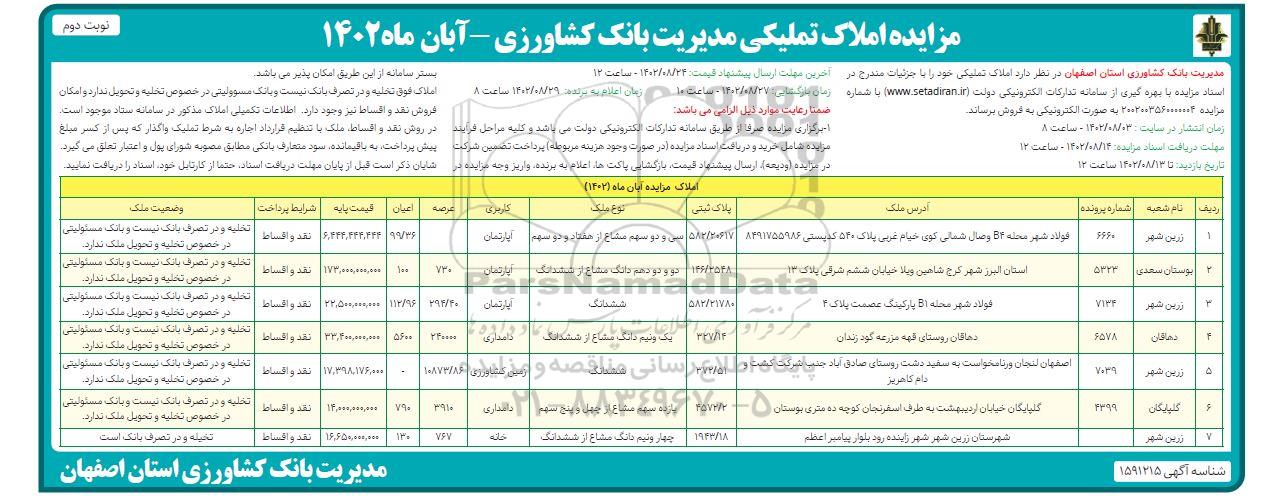 نوبت دوم
مزایده املاک تملیکی مدیریت بانک کشاورزی - آبان ماه ۱۴۰۲
مدیریت بانک کشاورزی استان اصفهان در نظر دارد املاک تملیکی خود را با جزئیات مندرج در
اسناد مزایده با بهره گیری از سامانه تدارکات الکترونیکی دولت (www.setadiran.ir) با شماره
مزایده ۲۰۰۲۰۰۳۵۶۰۰۰۰۰۰۴ به صورت الکترونیکی به فروش برساند.
زمان انتشار در سایت : ۱۴۰۲/۰۸/۰۳ - ساعت ۸
مهلت دریافت اسناد مزایده: ۱۴۰۲/۰۸/۱۴ - ساعت ۱۲
تاریخ بازدید: تا ۱۴۰۲/۰۸/۱۳ ساعت ۱۲
آخرین مهلت ارسال پیشنهاد قیمت: ۱۴۰۲/۰۸/۲۴ - ساعت ۱۲
زمان بازگشایی: ۱۴۰۲/۰۸/۲۷ - ساعت ۱۰ زمان اعلام به برنده: ۱۴۰۲/۰۸/۲۹ ساعت ۸
ضمنا رعایت موارد ذیل الزامی می باشد:
۱-برگزاری مزایده صرفا از طریق سامانه تدارکات الکترونیکی دولت می باشد و کلیه مراحل فرآیند
مزایده شامل خرید و دریافت اسناد مزایده (در صورت وجود هزینه مربوطه) پرداخت تضمین شرکت
در مزایده (ودیعه)، ارسال پیشنهاد قیمت، بازگشایی پاکت ها، اعلام به برنده، واریز وجه مزایده در
بستر سامانه از این طریق امکان پذیر می باشد.
املاک فوق تخلیه و در تصرف بانک نیست و بانک مسوولیتی در خصوص تخلیه و تحویل ندارد و امکان
فروش نقد و اقساط نیز وجود دارد. اطلاعات تکمیلی املاک مذکور در سامانه ستاد موجود است.
در روش نقد و اقساط، ملک با تنظیم قرارداد اجاره به شرط تملیک واگذار که پس از کسر مبلغ
پیش پرداخت، به باقیمانده، سود متعارف بانکی مطابق مصوبه شورای پول و اعتبار تعلق می گیرد.
شایان ذکر است قبل از پایان مهلت دریافت اسناد، حتما از کارتابل خود، اسناد را دریافت نمایید.
املاک مزایده آبان ماه (۱۴۰۲)
ردیف نام شعبه شماره پرونده آدرس ملک پلاک ثبتی نوع ملک کاربری عرصه اعیان قیمت پایه شرایط پرداخت وضعیت ملک
۱ زرین شهر ۶۶۶۰ فولاد شهر محله B۴ وصال شمالی کوی خیام غربی پلاک ۵۴۰ کدپستی ۸۴۹۱۷۵۵۹۸۶ ۵۸۲/۲۰۶۱۷ سی و دو سهم مشاع از هفتاد و دو سهم آپارتمان ۹۹/۳۶ ۶,۴۴۴,۴۴۴,۴۴۴ نقد و اقساط تخلیه و در تصرف بانک نیست و بانک مسئولیتی
در خصوص تخلیه و تحویل ملک ندارد.
۲ بوستان سعدی ۵۳۲۳ استان البرز شهر کرج شاهین ویلا خیابان ششم شرقی پلاک ۱۳ ۱۴۶/۲۵۴۸ دو و دو دهم دانگ مشاع از ششدانگ آپارتمان ۷۳۰ ۱۰۰ ۱۷۳,۰۰۰,۰۰۰,۰۰۰ نقد و اقساط تخلیه و در تصرف بانک نیست و بانک مسئولیتی
در خصوص تخلیه و تحویل ملک ندارد.
۳ زرین شهر ۷۱۳۴ فولاد شهر محله B۱ پارکینگ عصمت پلاک ۴ ۵۸۲/۲۱۷۸۰ ششدانگ آپارتمان ۲۹۴/۴۰ ۱۱۲/۹۶ ۲۲,۵۰۰,۰۰۰,۰۰۰ نقد و اقساط تخلیه و در تصرف بانک نیست و بانک مسئولیتی
در خصوص تخلیه و تحویل ملک ندارد.
۴ دهاقان ۶۵۷۸ دهاقان روستای قهه مزرعه گود زندان ۳۲۷/۱۴ یک ونیم دانگ مشاع از ششدانگ دامداری ۲۴۰۰۰۰ ۵۶۰۰ ۳۳,۴۰۰,۰۰۰,۰۰۰ نقد و اقساط تخلیه و در تصرف بانک نیست و بانک مسئولیتی
در خصوص تخلیه و تحویل ملک ندارد.
۵ زرین شهر ۷۰۳۹ اصفهان لنجان ورنامخواست به سفید دشت روستای صادق آباد جنب شرکت کشت و
دام کاهریز ۳۷۲/۵۱ ششدانگ زمین کشاورزی ۱۰۸۷۳/۸۶ - ۱۷,۳۹۸,۱۷۶,۰۰۰ نقد و اقساط تخلیه و در تصرف بانک نیست و بانک مسئولیتی
در خصوص تخلیه و تحویل ملک ندارد.
۶ گلپایگان ۴۳۹۹ گلپایگان خیابان اردیبهشت به طرف اسفرنجان کوچه ده متری بوستان ۴۵۷۲/۲ پازده سهم مشاع از چهل و پنج سهم دامداری ۳۹۱۰ ۷۹۰ ۱۴,۰۰۰,۰۰۰,۰۰۰ نقد و اقساط تخلیه و در تصرف بانک نیست و بانک مسئولیتی
در خصوص تخلیه و تحویل ملک ندارد.
۷ زرین شهر شهرستان زرین شهر شهر زاینده رود بلوار پیامبر اعظم ۱۹۴۳/۱۸ چهار ونیم دانگ مشاع از ششدانگ خانه ۷۶۷ ۱۳۰ ۱۶,۶۵۰,۰۰۰,۰۰۰ نقد و اقساط تخیله و در تصرف بانک است
ParsNamadData
۰۲۱-۸۸۳۴۹۶۷۰-۵
شناسه آگهی ۱۵۹۱۲۱۵
مدیریت بانک کشاورزی استان اصفهان